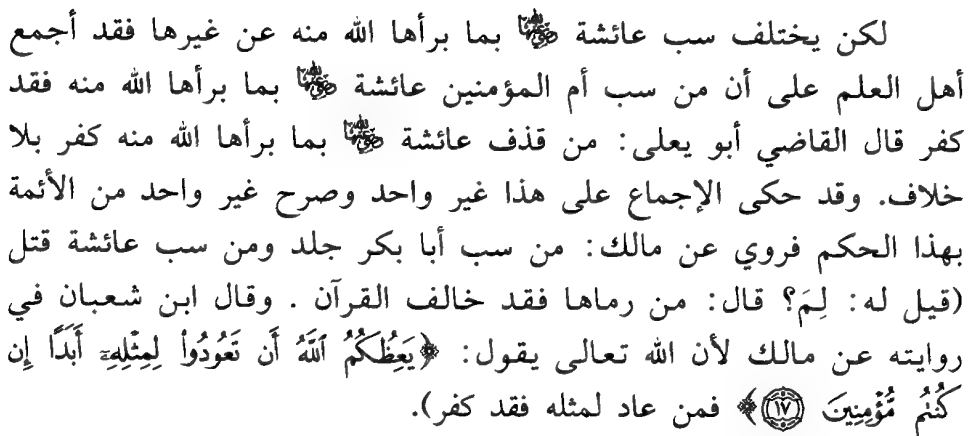 لكن يختلف سب عائشة رضي الله عنها بما برأها الله منه عن غيرها فقد أجمع
أهل العلم على أن من سب أم المؤمنين عائشة رضي الله عنها بما برأها الله منه فقد
كفر قال القاضي أبو يعلى: من قذف عائشة رضي الله عنها بما برأها الله منه كفر بلا
خلاف. وقد حكى الإجماع على هذا غير واحد وصرح غير واحد من الأئمة
بهذا الحكم فروي عن مالك: من سب أبا بكر جلد ومن سب عائشة قتل
(قيل له: لِمَ؟ قال: من رماها فقد خالف القرآن . وقال ابن شعبان في
روايته عن مالك لأن الله تعالى يقول: ﴿يَعِظُكُمُ ٱللَّهُ أَن تَعُودُوا۟ لِمِثْلِهِۦٓ أَبَدًا إِن
كُنتُم مُّؤْمِنِينَ ١٧﴾ فمن عاد لمثله فقد كفر).